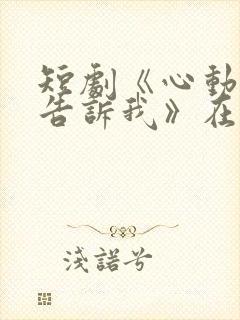 短劇《心動
告訴我》在
淺諾兮